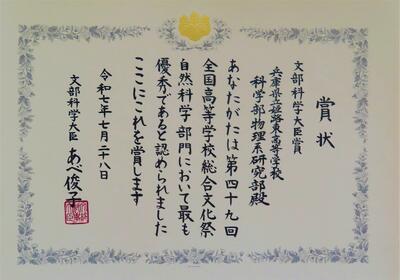 賞状
文部科学大臣賞
兵庫県立姫路東高等学校
科学部物理系研究部殿
あなたがたは第四十九回
全国高等学校総合文化祭
自然科学部門において最も
優秀であると認められました
ここにこれを賞します
令和七年七月二十八日
文部科学大臣 あべ俊子